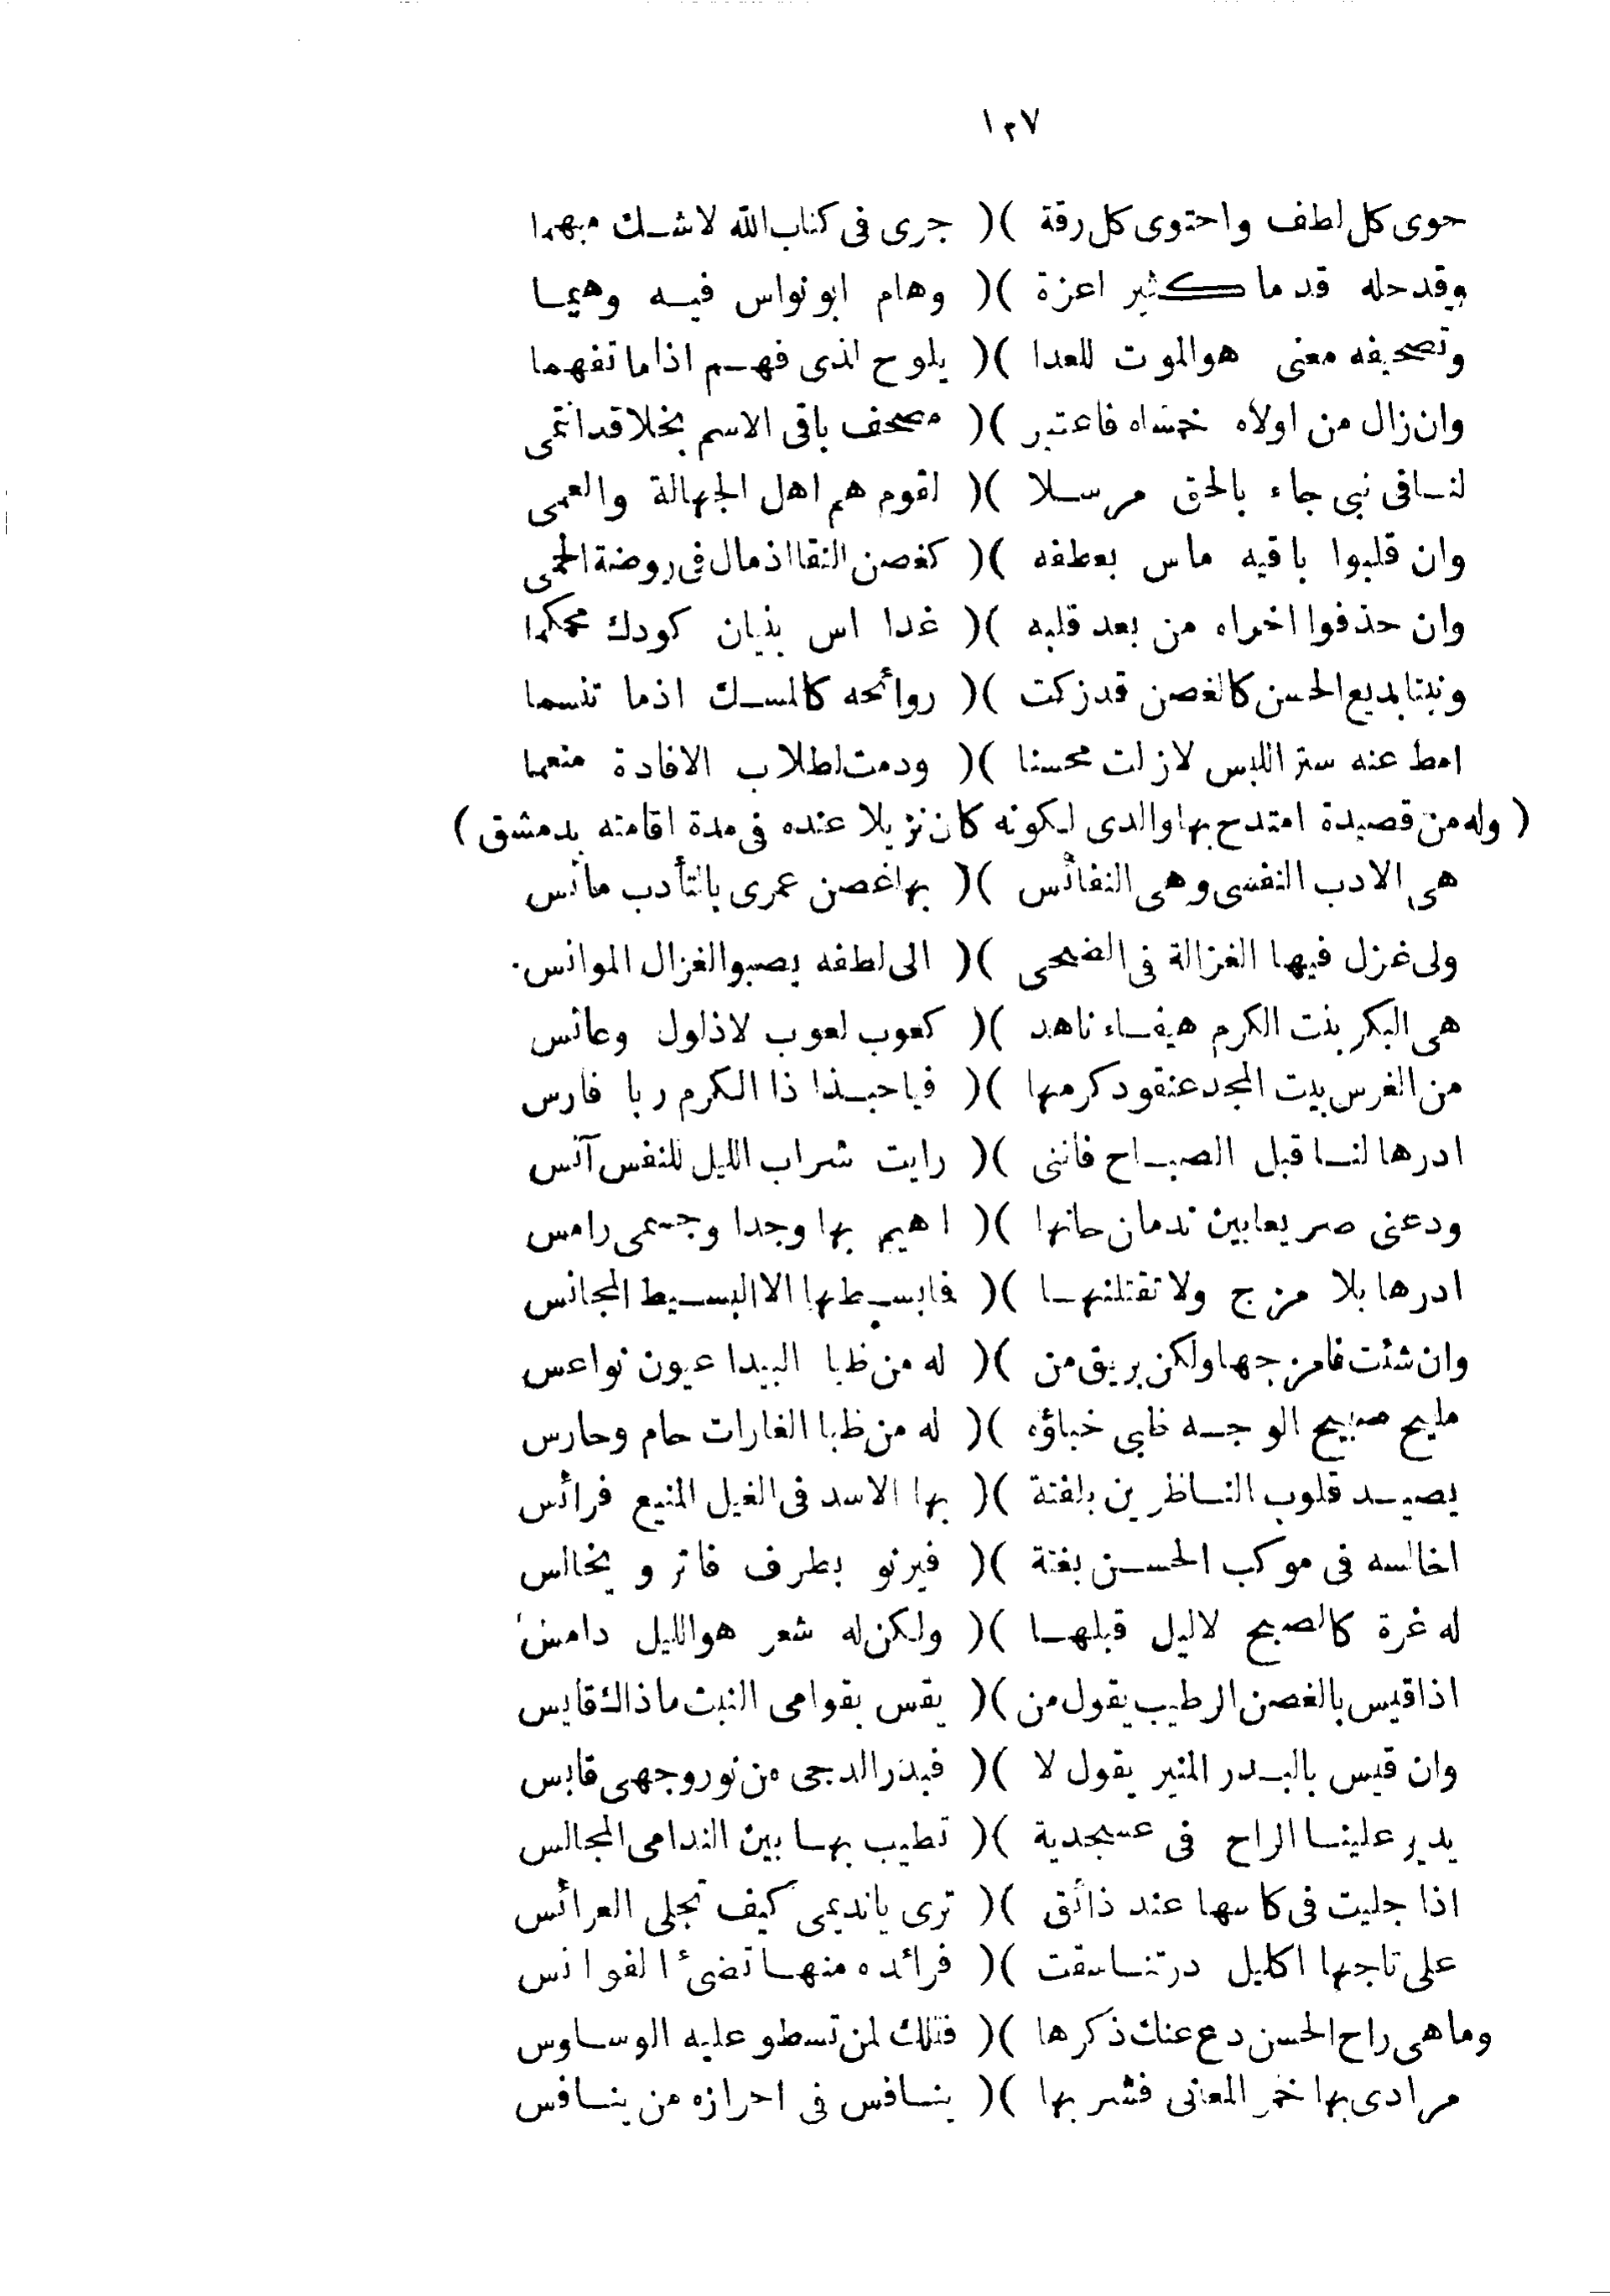 ١٣٧
حوى كل لطف واحتوى كل رقة )( جرى فى كتاب الله لاشك مبهما
وقد حله قدما كثير اعزة )( وهام ابو نواس فيه وهيما
وتصحيفه معنى هو الموت للعدا )( يلوح لذى فهم اذا ما تفهما
وان زال من اولاه خمساه فاعتبر )( مصحف باقى الاسم بخلا قد انتمى
لنا فى نبى جاء بالحق مرسلا )( لقوم هم اهل الجهالة والعمى
وان قلبوا باقيه ماس بعطفه )( كغصن النقا اذ مال فى روضة الحمى
وان حذفوا اخراه من بعد قلبه )( غدا اس بنيان كودك محكما
ونبتا بديع الحسن كالغصن قد زكت )( روائحه كالمسك اذما تنسما
امط عنه ستر اللبس لازلت محسنا )( ودمت لطلاب الافادة منعما
( وله من قصيدة امتدح بها والدى لكونه كان نزيلا عنده فى مدة اقامته بدمشق )
هى الادب النفسى وهى النفائس )( بها غصن عمرى بالتأدب مائس
ولى غزل فيها الغزالة فى الضحى )( الى لطفه يصبو الغزال الموانس
هى البكر بنت الكرم هيفاء ناهد )( كعوب لعوب لاذلول وعانس
من الغرس بيت المجد عنقود كرمها )( فيا حبذا ذا الكرم ربا فارس
ادرها لنا قبل الصباح فاننى )( رايت شراب الليل للنفس آنس
ودعنى صريعا بين ندمان حانها )( اهيم بها وجدا وجسمى رامس
ادرها بلا مزج ولا تقتلنها )( فابسطها الا البسيط المجانس
وان شئت فامزجها ولكن بريق من )( له من ظبا البيدا عيون نواعس
مليح صبيح الوجه ظبى خباؤه )( له من ظبا الغارات حام وحارس
يصيد قلوب الناظرين بلفتة )( بها الاسد فى الغيل المنيع فرائس
اخالسه فى موكب الحسن بغتة )( فيرنو بطرف فاتر ويخالس
له غرة كالصبح لاليل قبلها )( ولكن له شعر هو الليل دامس
اذا قيس بالغصن الرطيب يقول من )( يقس بقوامى النبت ماذاك قايس
وان قيس بالبدر المنير يقول لا )( فبدر الدجى من نور وجهى قابس
يدير علينا الراح فى عسجدية )( تطيب بها بين الندامى المجالس
اذا جليت فى كاسها عند ذائق )( ترى يانديمى كيف تجلى العرائس
على تاجها اكليل در تناسقت )( فرائده منها تضئ الفوانس
وما هى راح الحسن دع عنك ذكرها )( فتلك لمن تسطو عليه الوساوس
مرادى بها خمر المعانى فشربها )( ينافس فى احرازه من ينافس